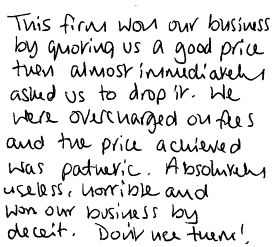 This firm won our business
by quoting us a good price
then almost immediately
asked us to drop it. We
were overcharged on fees
and the price achieved
was pathetic. Absolutely
useless, horrible and
won our business by
deceit. Don't use them!